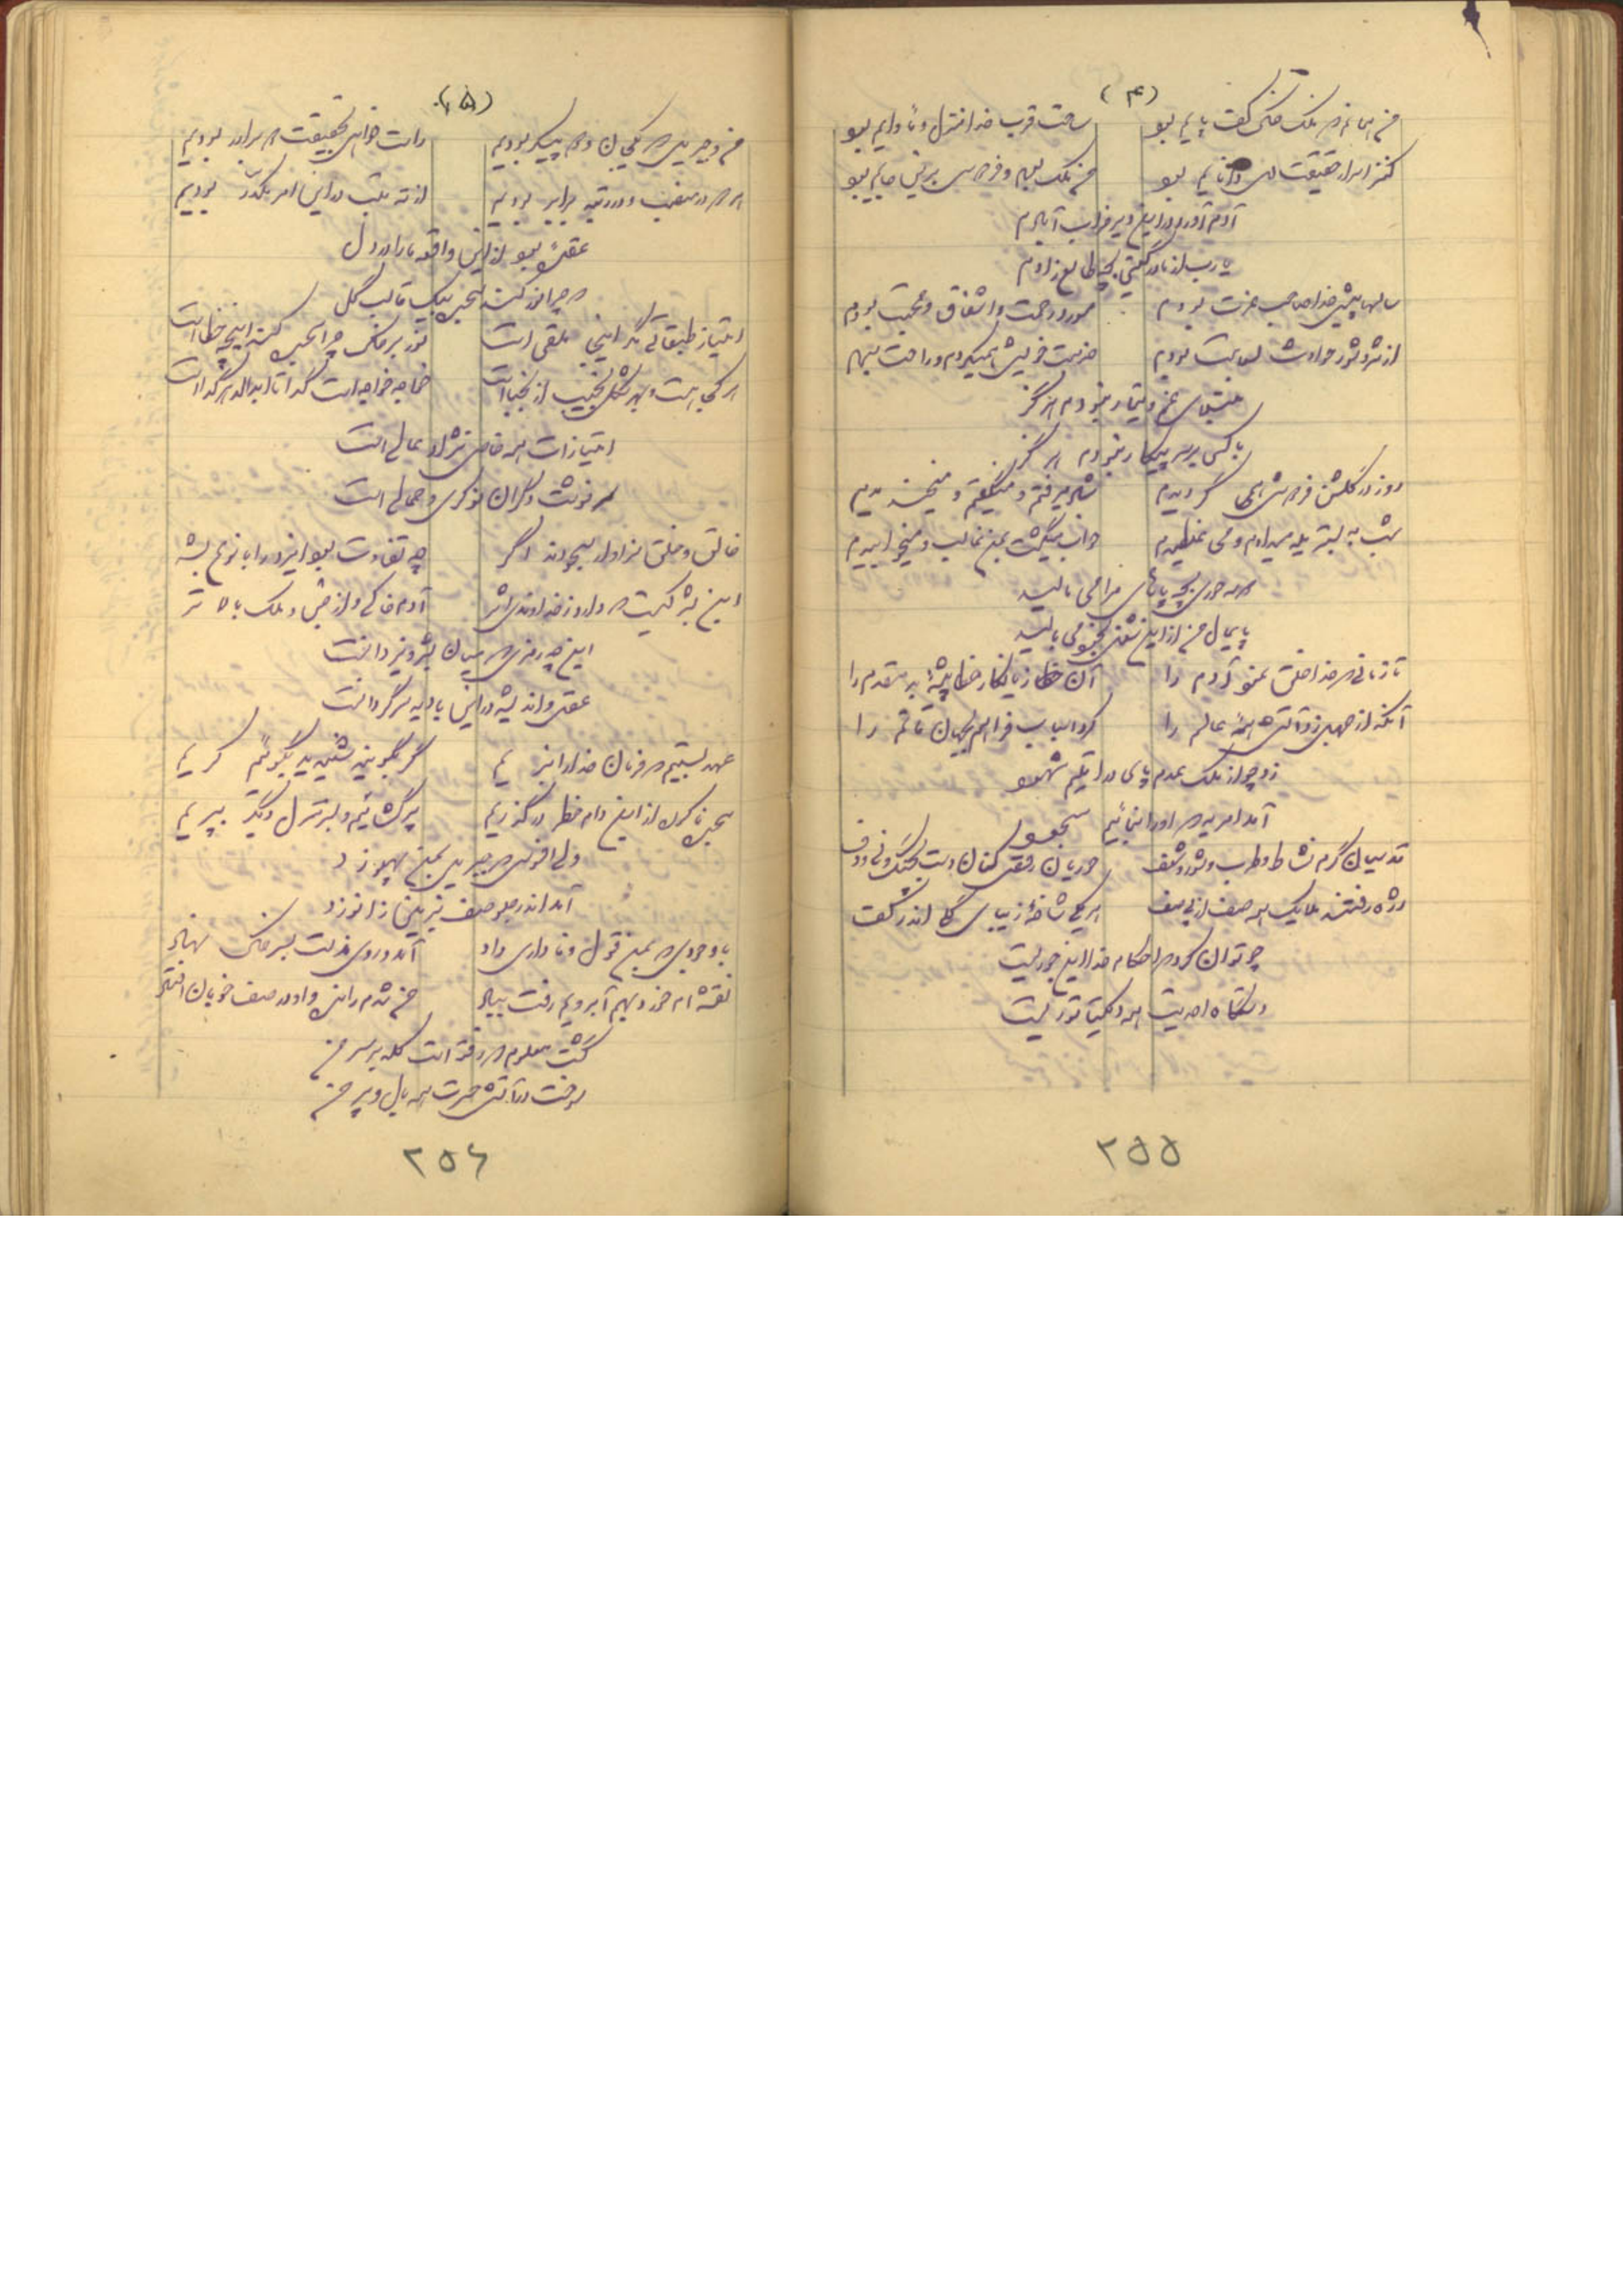 (۴)
من همانم که ملک خاک کف پایم بود ساحت قرب خدا منزل و مأوایم بود
کنز اسرار حقیقت دل دانایم بود من ملک بودم و فردوس برین جایم بود
آدم آورد در این دیر خراب آبادم
یا رب از مادر گیتی بچه طالع زادم
سالها پیش خدا صاحب عزت بودم مورد رحمت و اشفاق و محبت بودم
از شر و شور حوادث سلامت بودم خدمت خویش همیکردم و راحت بودم
مبتلای غم و تیمار نبودم هرگز
با کسی بر سر پیکار نبودم هرگز
روز در گلشن فردوس همی گردیدم شعر میگفتم و میخندیدم
شب به بستر یله میدادم و می غلطیدم خواب میگشت بمن غالب و میخوابیدم
همه حوری بچه پاهای مرا می مالید
پایمال من از این شغل بخود می بالید
تا زمانی که خدا خلق نمود آدم را آن خطا زیانکار خطا پیشهٔ بد مقدم را
آنکه از جهل زد آتش همهٔ عالم را کرد اسباب فراهم بجهان ماتم را
زد چو از ملک عدم پای در اقلیم شهود
آمد امریه که او را بنمائیم سجود
قدسیان گرم نشاط و طرب و شور و شعف حوریان رقص کنان دست بچنگ و نی و دف
رژه رفتند ملایک همه صف از پی صف هر یکی شاخهٔ زیبای گل اندر کف
چو توان کرد که احکام خدا این جوریست
دستگاه احدیت همه دیکتاتوریست
۲۵۵
(۵)
من و جبریل که یکجان و دو پیکر بودیم راست خواهی بحقیقت دو برادر بودیم
هر دو در منصب و در رتبه برابر بودیم از ته قلب در این امر مکدر بودیم
عقده بود از این واقعه ما را در دل
که چرا نور کند سجده بیک قالب گل
امتیاز طبقاتی مگر اینجا ملقی است نور بر خاک چرا سجده کند این چه خطاست
هر کجا هست بهر شکل نجیب از نجباست خواجه خواجه است گدا تا ابدالدهر گداست
امتیازات همه خاص نژاد عالی است
سرنوشت دگران نوکری و حمالی است
خالق و خلق سزاوار سجودند اگر چه تفاوت بود ایزد را با نوع بشر
این بشر کیست که دارد ز خداوند اثر آدم خاکی و از جن و ملک بالاتر
این چه رمزی که میان بشر و یزدانست
عقل و اندیشه در این بادیه سرگردانست
عهد بستیم که فرمان خدا را نبریم گر بگویند شنیدید بگوئیم کریم
سجده ناکرده از این دام خطر درگذریم پر گشائیم و بر منزل دیگر بپریم
ولی افسوس که جبریل بمن پهلو زد
آمد اندر جلو صف بزمین زانو زد
با وجودی که بمن قول وفاداری داد آمد و روی مذلت بسر خاک نهاد
نقشه ام خورد بهم آبرویم رفت بباد من شدم رانده و او در صف خوبان افتاد
گشت معلوم که رفته است کله بر سر من
سوخت در آتش حسرت همه بال و پر من
۲۵۶